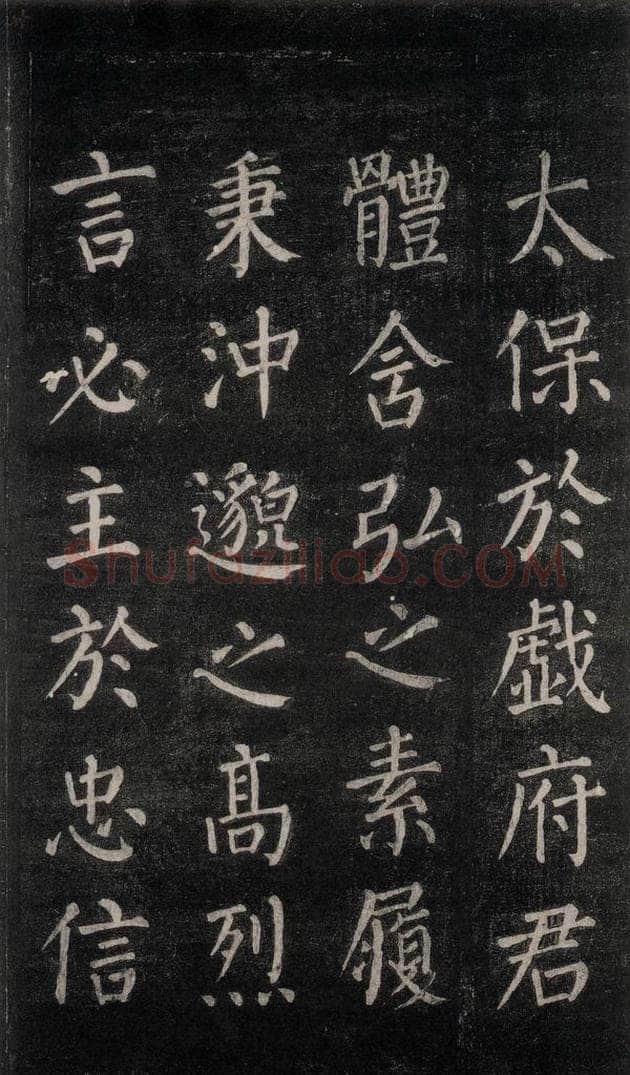 太保於戲府君
體含弘之素履
秉沖邈之高烈
言必主於忠信
Shufaziliao.COM